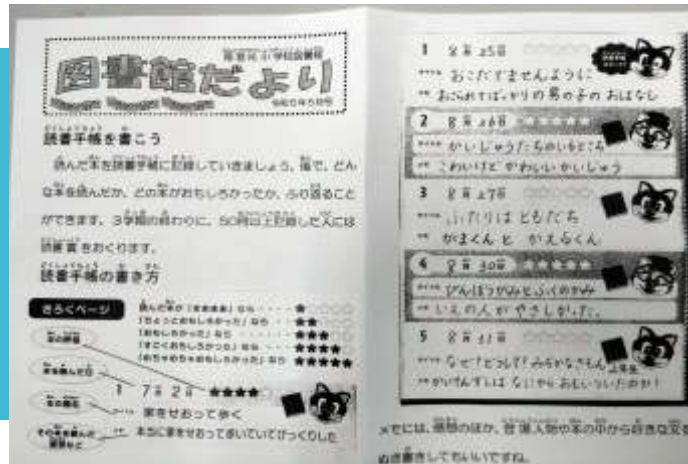 図書館だより
令和5年5月号
読書手帳を書こう
読んだ本を読書手帳に記録していきましょう。後で、どん
な本を読んだか、どの本がおもしろかったか、ふり返ること
ができます。3学期の終わりに、50冊以上記録した人には
読書賞をおくります。
読書手帳の書き方
きろくページ
読んだ本が「まあまあ」なら・・・・★☆☆☆☆
「ちょっとおもしろかった」なら・・★★☆☆☆
「おもしろかった」なら・・・★★★☆☆
「すごくおもしろかった」なら・・★★★★☆
「めちゃめちゃおもしろかった」なら ★★★★★
本を読んだ日
本の題名
その本を読んだ
1 7月2日 ★★★★☆
家をせおって歩く
本当に家をせおって歩いていてびっくりした
1 8月25日 ☆☆☆☆☆
おこだでませんように
おこられてばっかりの男の子のおはなし
2 8月26日
かいじゅうたちのいるところ
こわいけどかわいいかいじゅう
3 8月27日 ☆☆☆☆☆
ふたりはともだち
がまくんと かえるくん
4 8月30日
びんぼうがみとふくのかみ
いえの人がやさしかった。
5 8月31日 ☆☆☆☆☆
なぜ?どうして?みぢかなぎもん
かいぜんずしは なにから おもいついたのか!
メモには、感想のほか、登場人物や本の中から好きな文を
ぬき書きしてもいいですね。